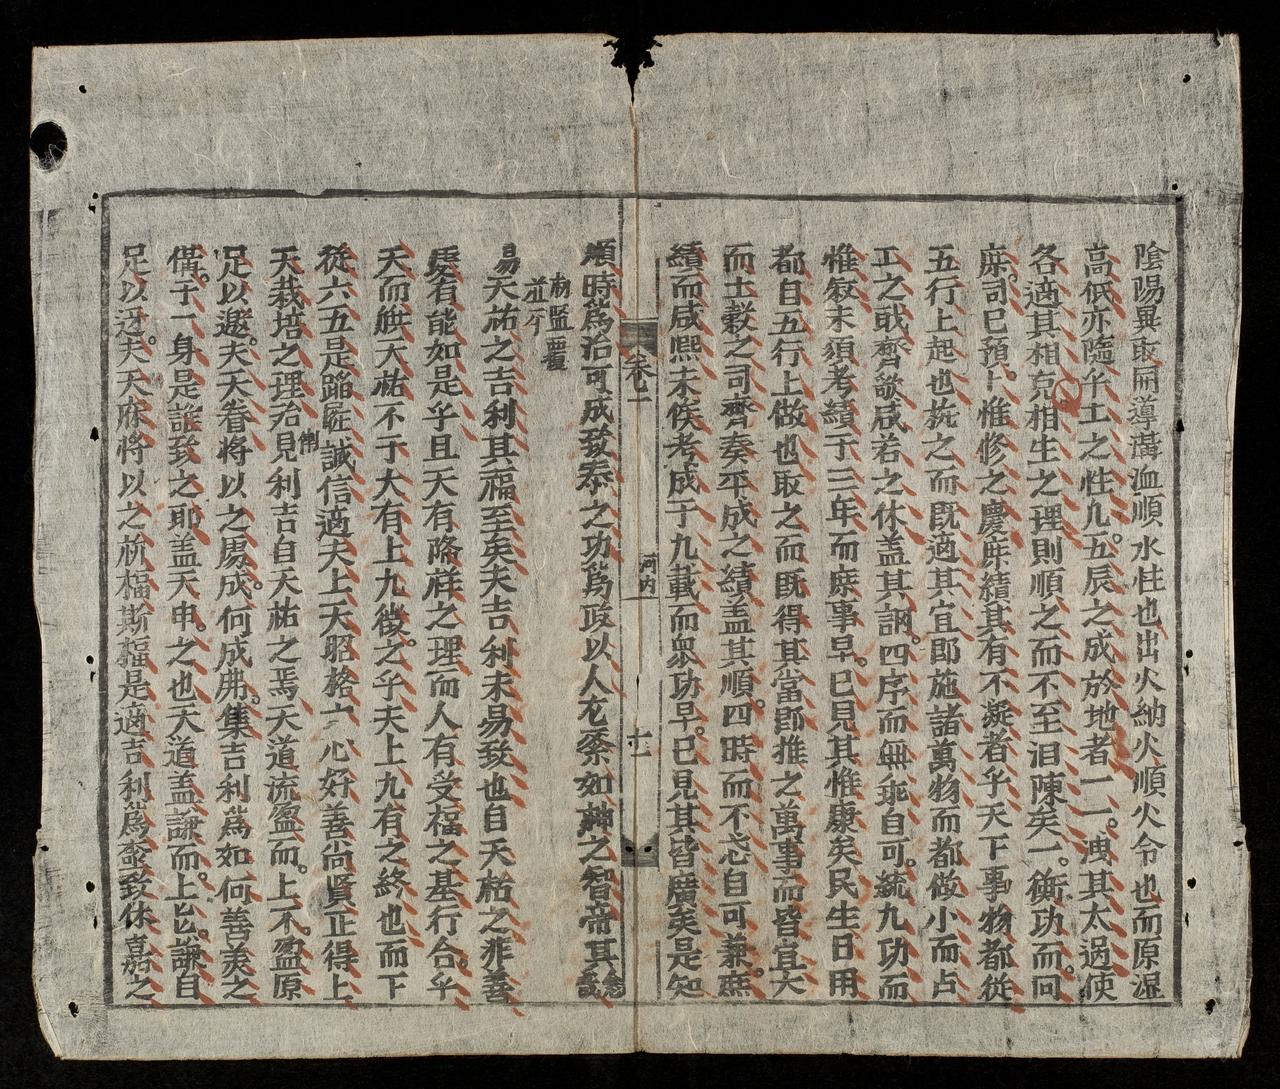 陰陽異取同導溝洫順水性也出火納火順火令也而原濕
高低亦隨乎土之性九五辰之成於地者一一洩其太過使
各適其相克相生之理則順之而不至汩陳矣一衡功而同
庶司已預卜惟修之慶庶績其有不凝者乎天下事物都從
五行上起也執之而既適其宜即施諸萬物而都做小而占
工之或齊欽咸若之休盖其詞四序而無乖自可統九功而
惟敘未須考績于三年而庶事早已見其惟康矣民生日用
都自五行上做也取之而既得其當即推之萬事而皆宜大
而土穀之司齊奏平成之績盖其順四時而不忒自可兼庶
績而咸熙未俟考成于九載而衆功早已見其皆廣矣是知
卷二
河内
十二
順時為治可成致泰之功為政以人尤藉如神之智帝其念哉
易天祐之吉利其福至矣夫吉利未易致也自天祐之非善
處有能如是乎且天有降祥之理而人有受福之基行合乎
天而膺天祐不于大有上九徵之乎夫上九有之終也而下
從六五是蹈匪誠信適夫上天昭格六心好善尚賢正得上
天栽培之理治見利吉自天祐之焉天道流盈而上不盈原
足以邀夫天眷將以之慶成何成弗集吉利為如何善美之
備于一身是誰致之耶盖天申之也天道盖謙而上匕謙自
足以迓夫天庥將以之祈福斯福是適吉利為奚致休嘉之